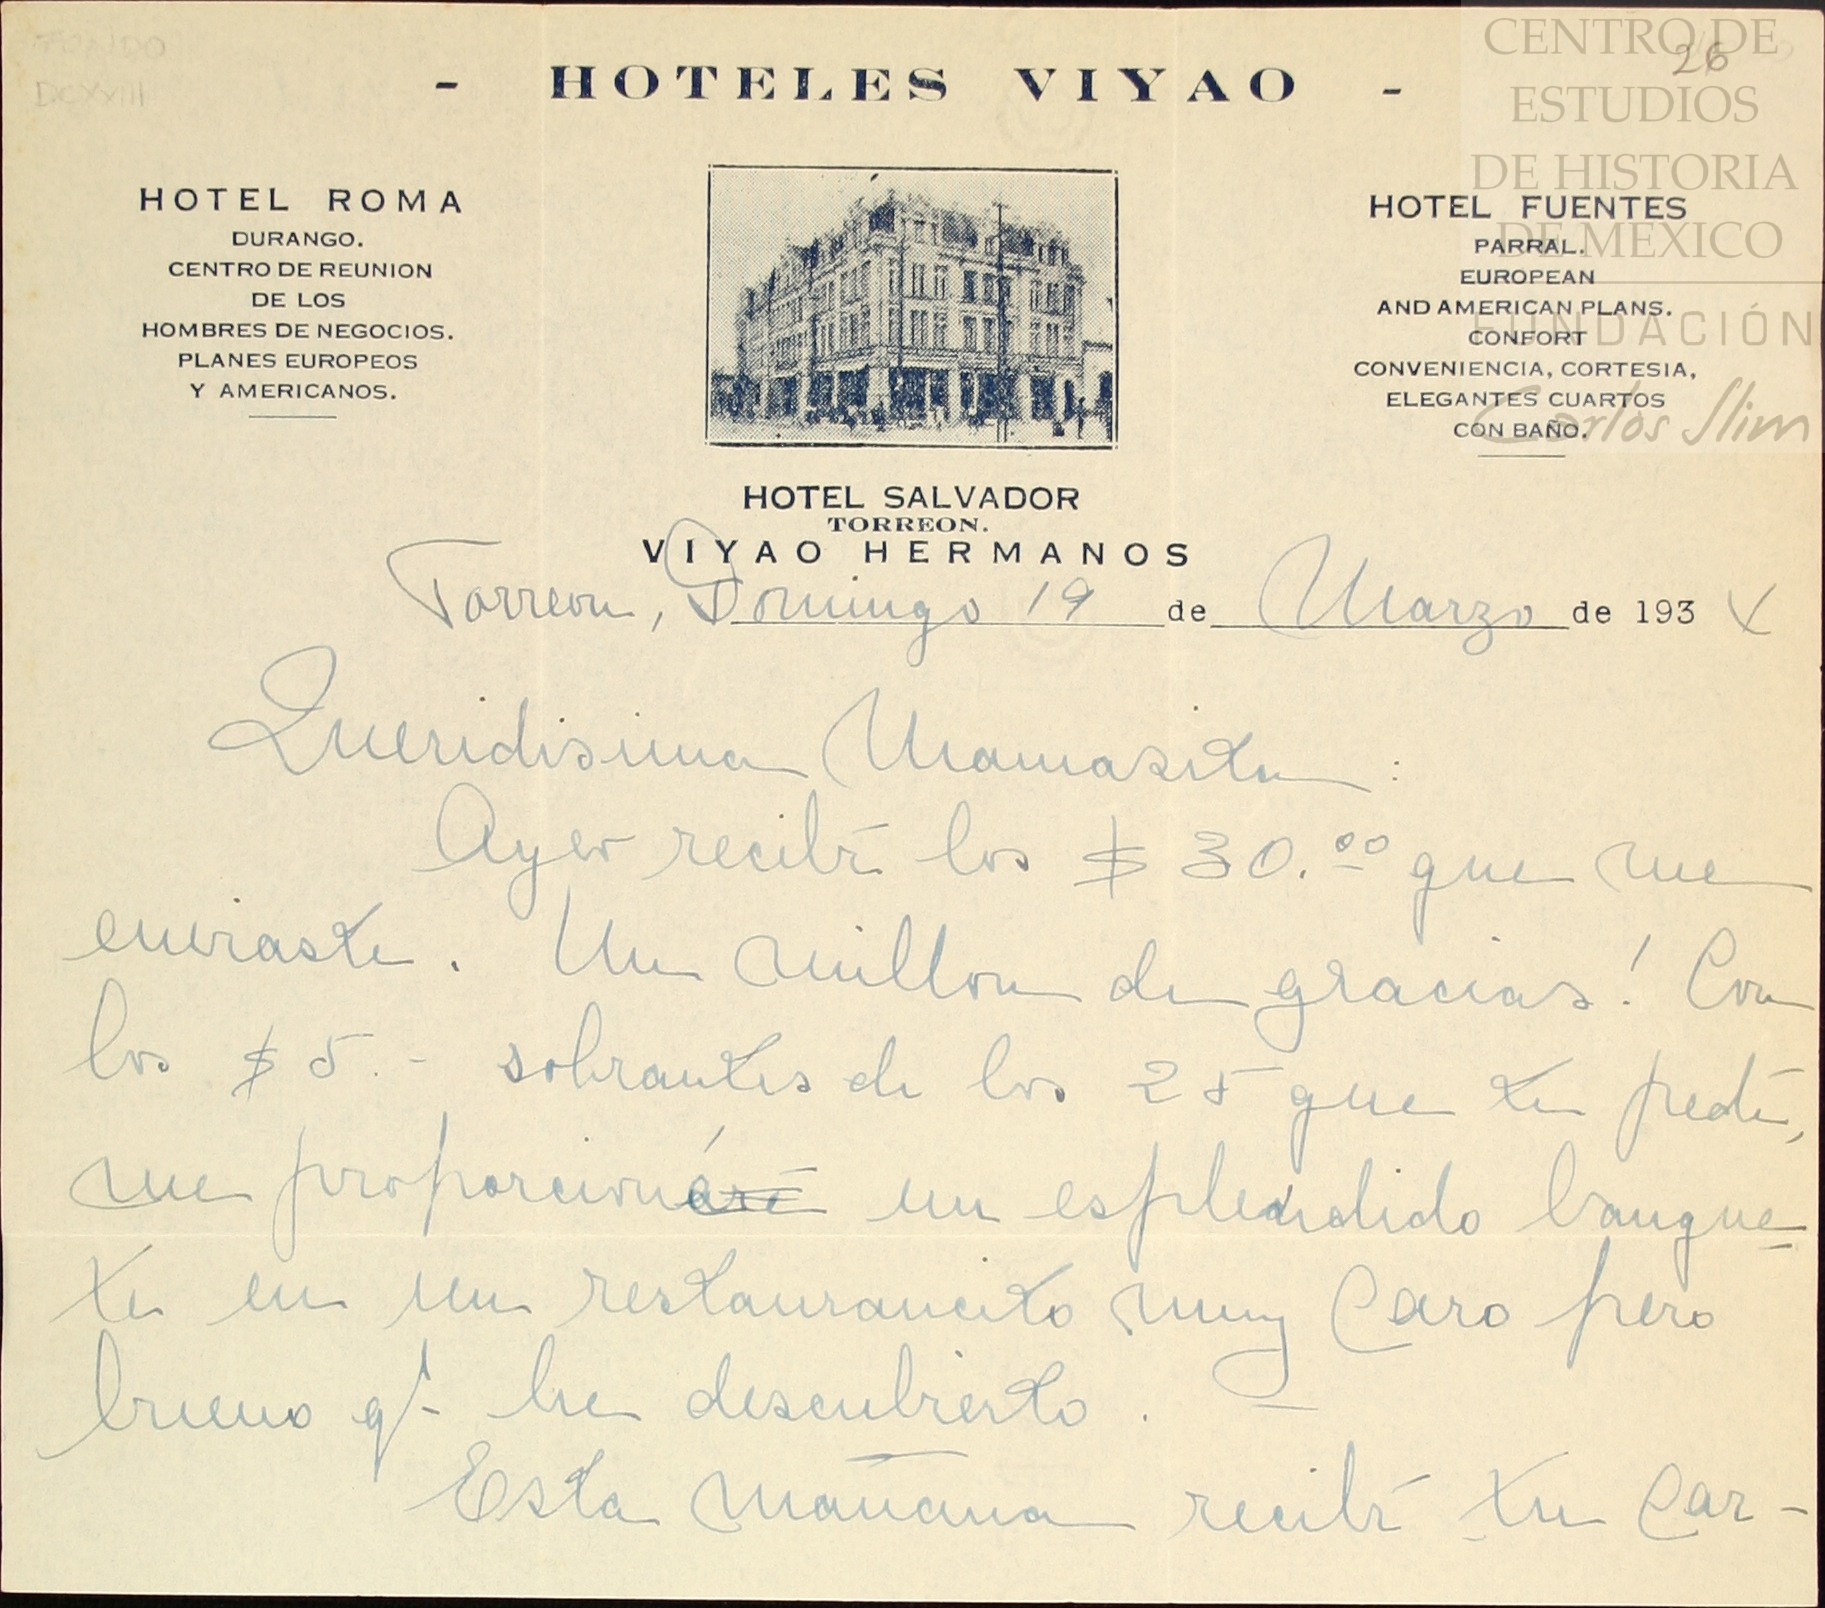 FONDO
DCXXIII
26
CENTRO DE
ESTUDIOS
DE HISTORIA
DE MEXICO
FUNDACIÓN
Carlos Slim
- HOTELES VIYAO -
HOTEL ROMA
DURANGO.
CENTRO DE REUNION
DE LOS
HOMBRES DE NEGOCIOS.
PLANES EUROPEOS
Y AMERICANOS.
HOTEL FUENTES
PARRAL.
EUROPEAN
AND AMERICAN PLANS.
CONFORT
CONVENIENCIA, CORTESIA,
ELEGANTES CUARTOS
CON BAÑO.
HOTEL SALVADOR
TORREON.
VIYAO HERMANOS
Torreon, Domingo 19 de Marzo de 193
Queridisima Mamasita :
Ayer recibí los $ 30.00 que me
enviaste. Un millon de gracias! Con
los $ 5.- sobrantes de los 25 que te pedí,
me proporcioné un esplendido banque
te en un restaurancito muy caro pero
bueno q' he descubierto.
Esta mañana recibí tu car-